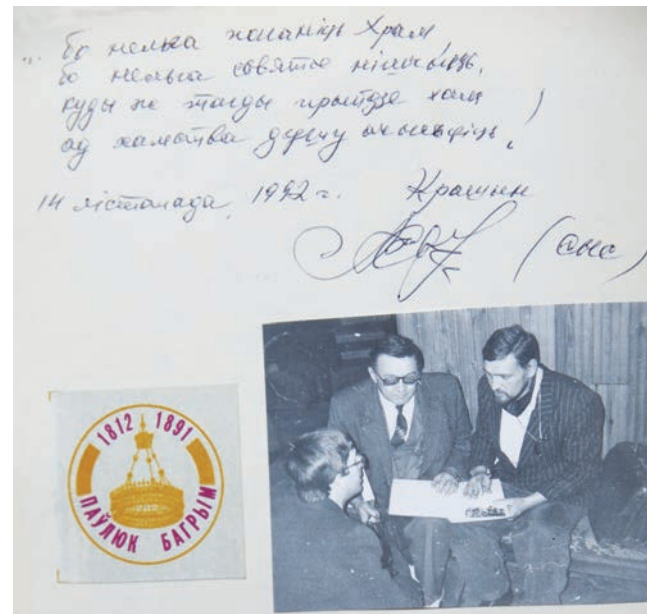 „ Бо нельга ... Храм,
бо нельга святое нішчыць,
куды ж тады прыйдзе хам
ад хамства душу ачысціць!
14 лістапада, 1992 г. Крошын
(Сыс)
1812 1891
ПАЎЛЮК БАГРЫМ